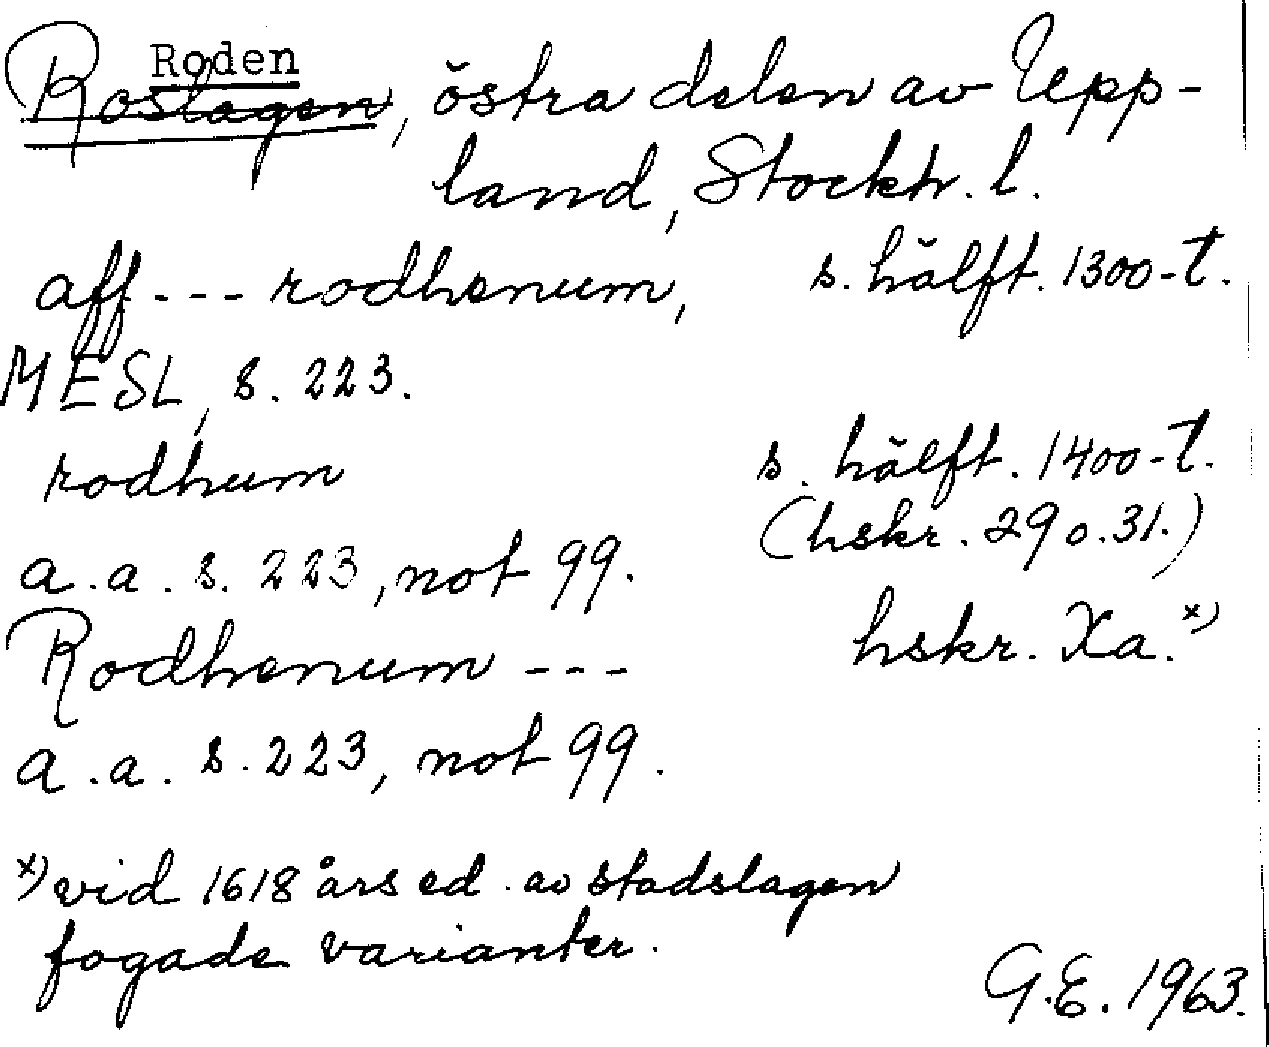 Roden
Roslagen, östra delen av Upp-
land, Stockh. l.
aff --- rodhenum, s. hälft. 1300-t.
MESL, s. 223.
rodhum s. hälft. 1400-t.
(hskr. 29 o. 31.)
a.a. s. 223, not 99.
Rodhenum --- hskr. Xa. x)
a.a. s. 223, not 99.
x) vid 1618 års ed. av stadslagen
fogade varianter.
G.E. 1963.